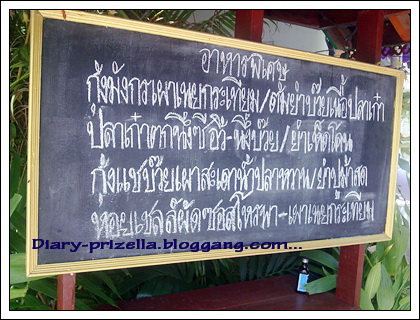 อาหารพิเศษ
กุ้งมังกรเผาเนยกระเทียม/ต้มยำบ๊วยเนื้อปลาเก๋า
ปลาเก๋าทอดนึ่งซีอิ๊ว-นึ่งบ๊วย/ยำเห็ดโคน
กุ้งแชบ๊วยเผาสะเดาน้ำปลาหวาน/ยำปูม้าสด
หอยเชลล์ผัดซอสโหรพา-เผาเนยกระเทียม
Diary-prizella.bloggang.com...